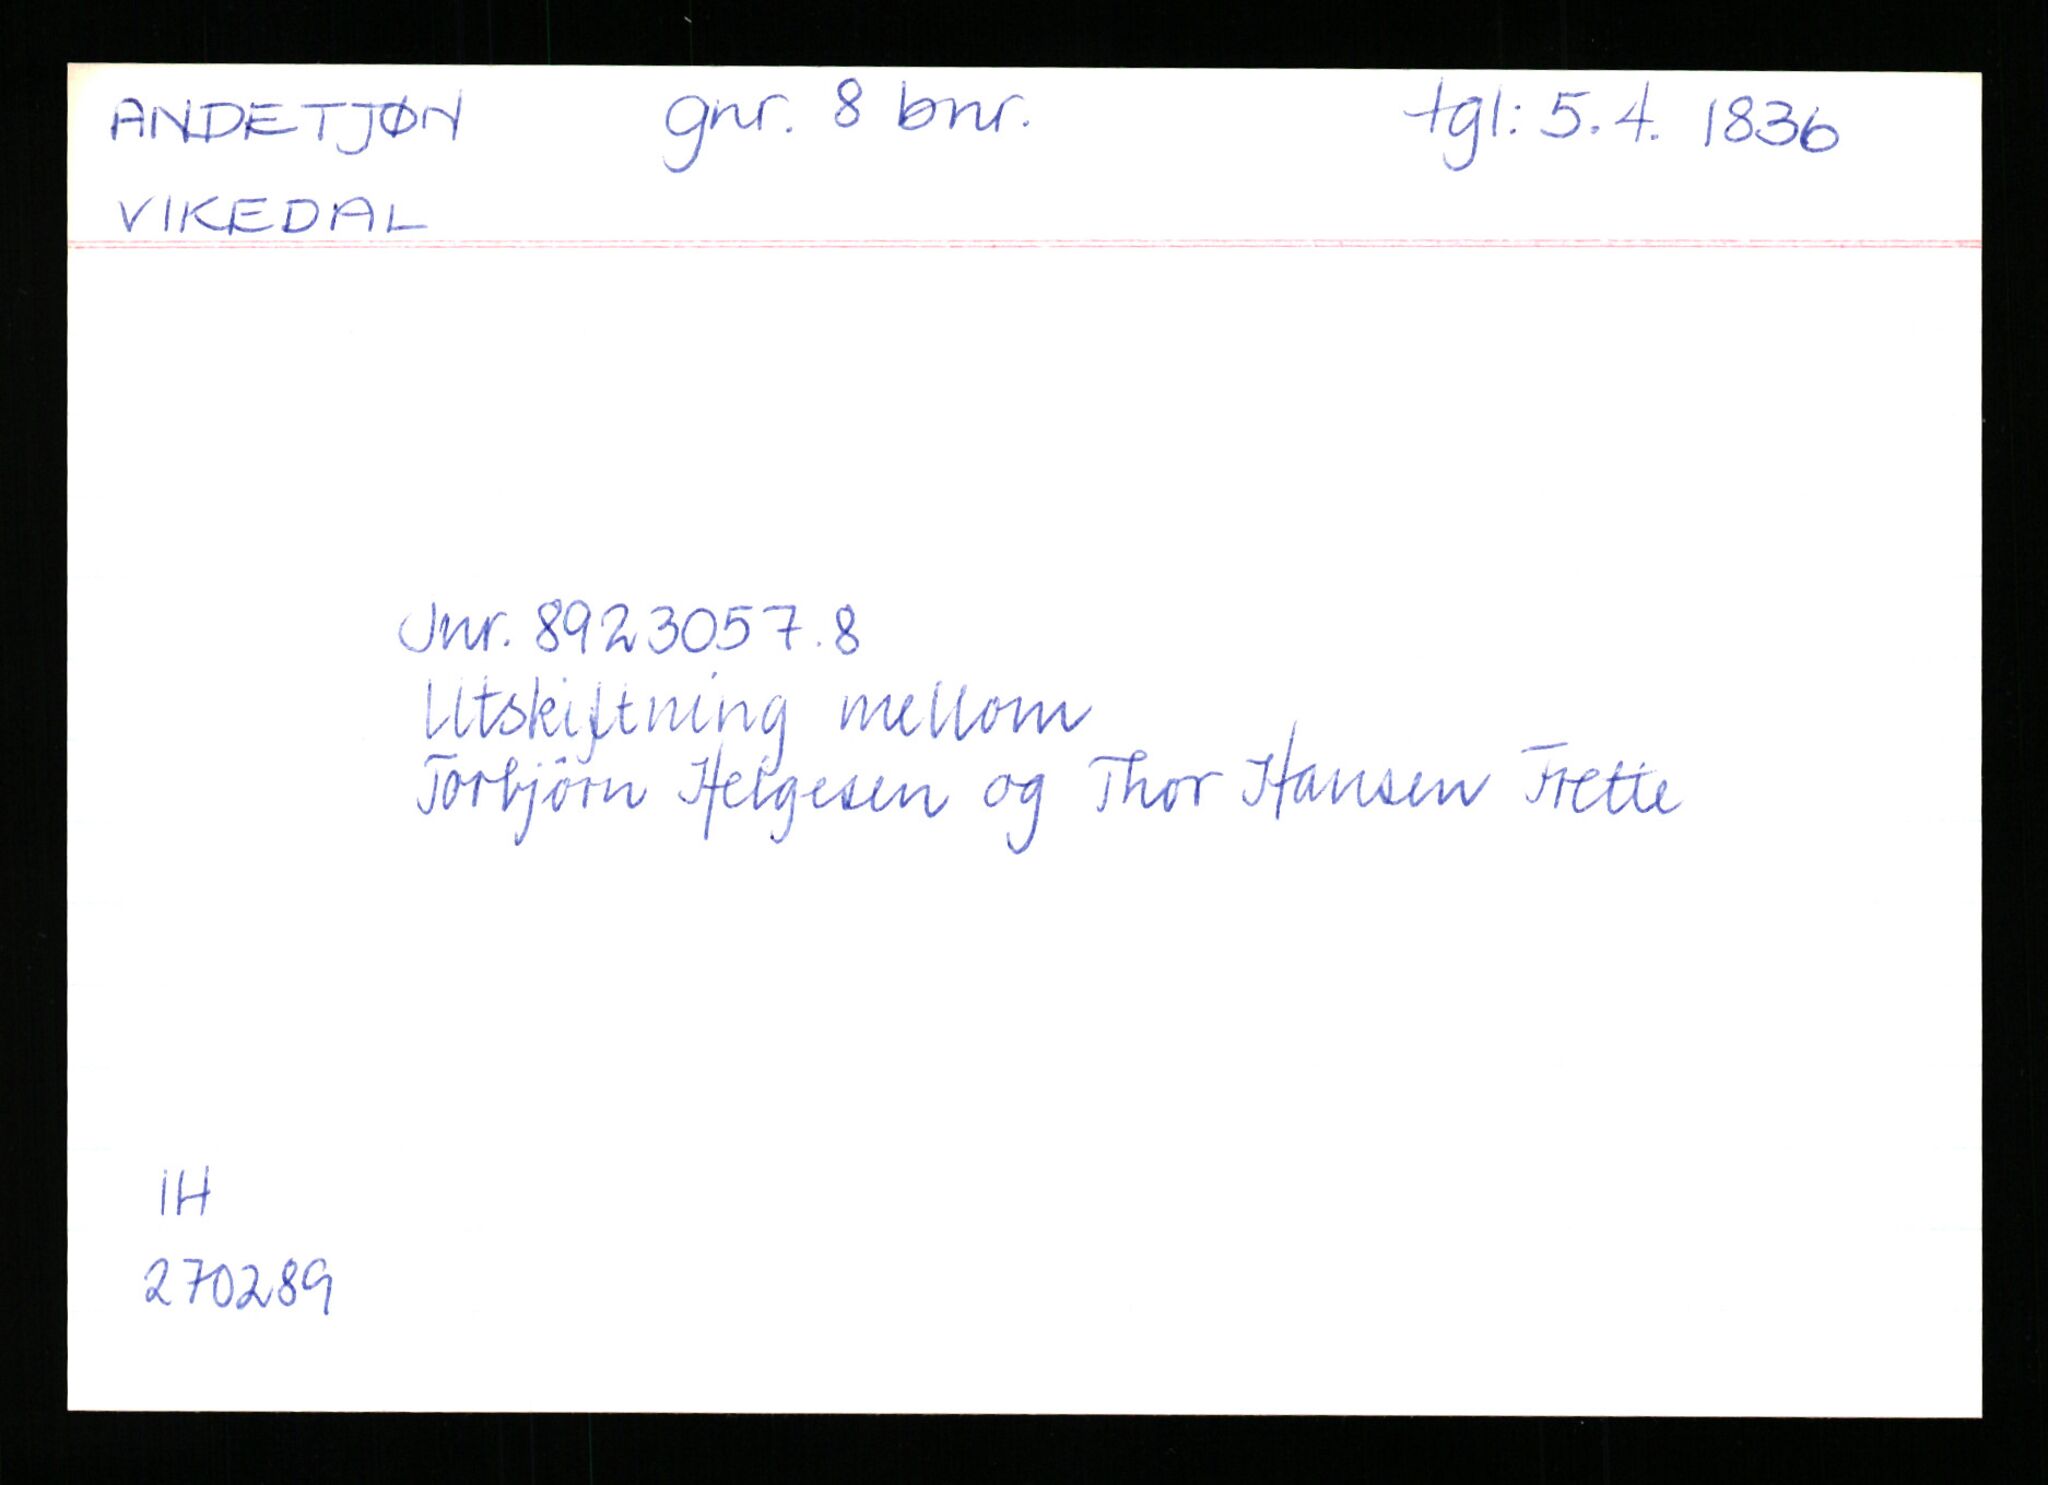 ANDETJØN gnr. 8 bnr. tgl: 5.4. 1836
VIKEDAL
Jnr. 8923057.8
Utskiftning mellom
Torbjörn Helgesen og Thor Hansen Frette
IH
270289